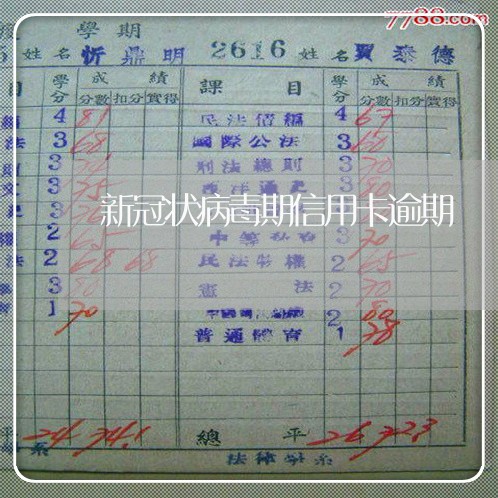 7788.com
學期
姓名 忻鼎明 2616 姓名 賈泰德
目 學分 成績 課目 學分 成績
分數 扣分 實得 分數 扣分 實得
4 81 民法債編 4 67
法 3 68 國際公法 3 60
3 刑法總則 3 70
3 75 西洋通史 3 80
新冠状病毒期信用卡逾期
2 65 3 70
法 2 68 68 民法物權 2 65
3 80 憲法 2 70
1 70 2 80
普通體育 1 78
平 24 74.1 總平 26 72.3
系 法律學系